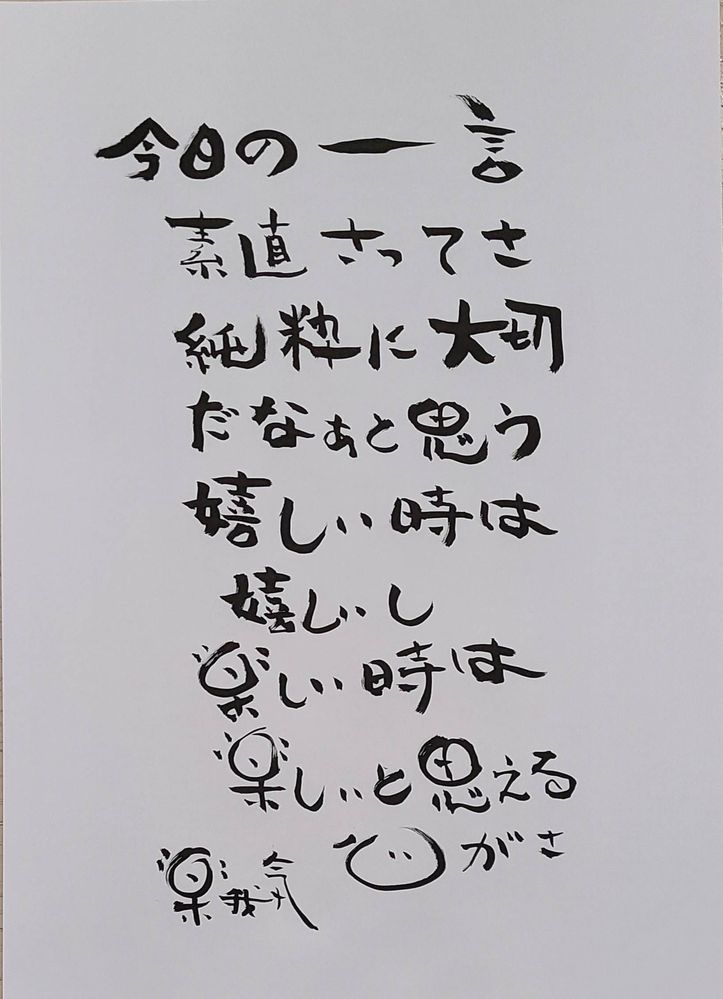 今日の一言
素直さってさ
純粋に大切
だなぁと思う
嬉しい時は
嬉しいし
楽しい時は
楽しいと思える
心がさ
楽我気